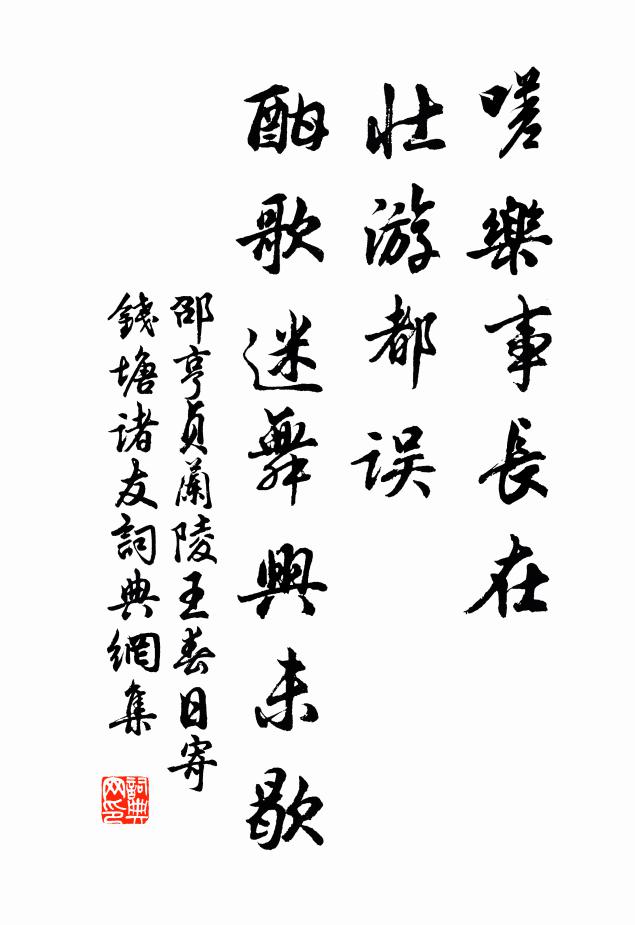 嗟樂事長在
壯游都误
酣歌迷舞興未歇
邵亨貞蘭陵王春日寄
錢塘诸友詞典網集
詞典网印